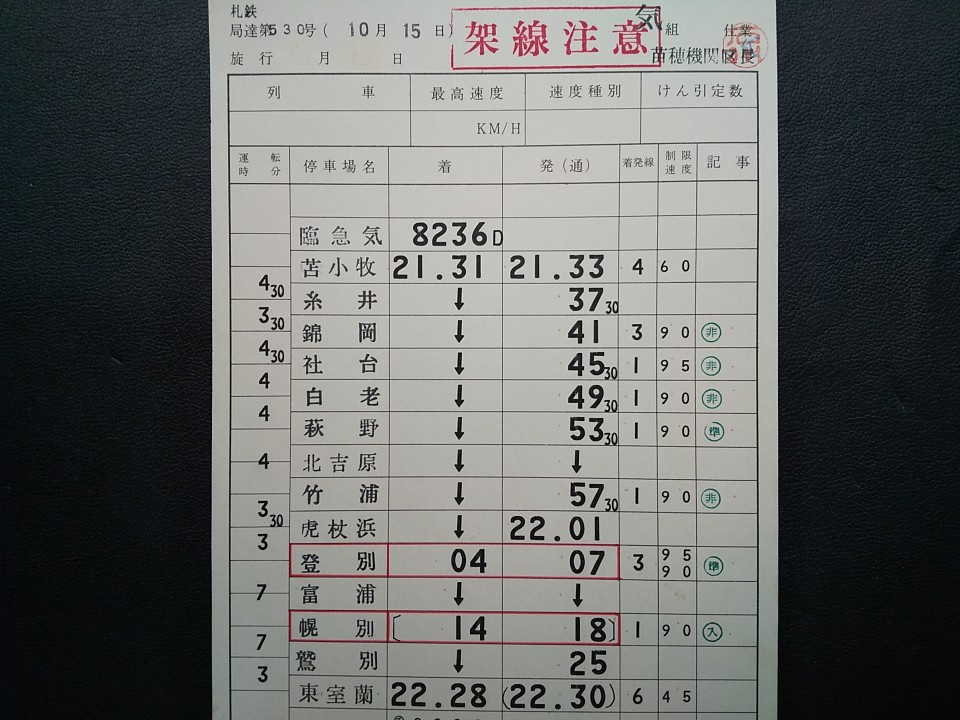 札鉄
局達第530号( 10月 15日) 架線注意 気 組 仕業
施行 月 日 苗穂機関区長
列車 最高速度 速度種別 けん引定数
KM/H
運転時分 停車場名 着 発(通) 着発線 制限速度 記事
臨急気 8236D
苫小牧 21.31 21.33 4 60
4 30
糸井 ↓ 37 30
3 30
錦岡 ↓ 41 3 90 非
4 30
社台 ↓ 45 30 1 95 非
4
白老 ↓ 49 30 1 90 非
4
萩野 ↓ 53 30 1 90 準
4
北吉原 ↓ ↓
竹浦 ↓ 57 30 1 90 非
3 30
虎杖浜 ↓ 22.01
3
登別 04 07 3 95 90 準
7
富浦 ↓ ↓
幌別 〔 14 18〕 1 90 入
7
鷲別 ↓ 25
3
東室蘭 22.28 (22.30) 6 45